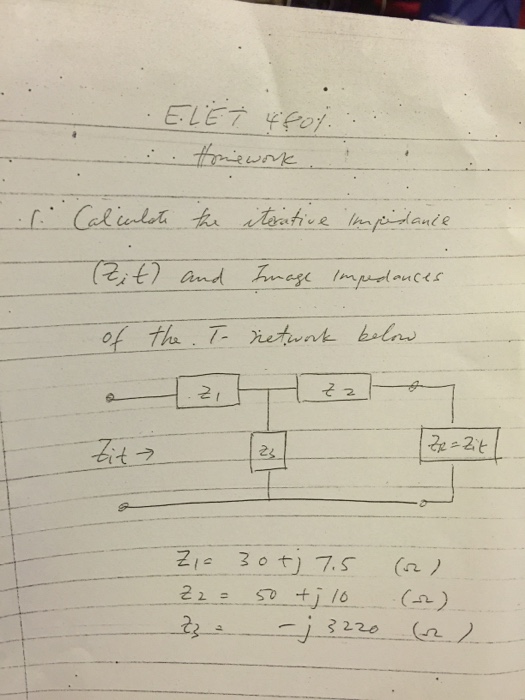 ELET 4801.
Homework
1. Calculate the iterative Impedance
(Zit) and Image Impedances
of the T-network below
Z1 Z2
Zit → Z3 ZR = Zit
Z1 = 30 + j 7.5 (Ω)
Z2 = 50 + j 10 (Ω)
Z3 = - j 3220 (Ω)